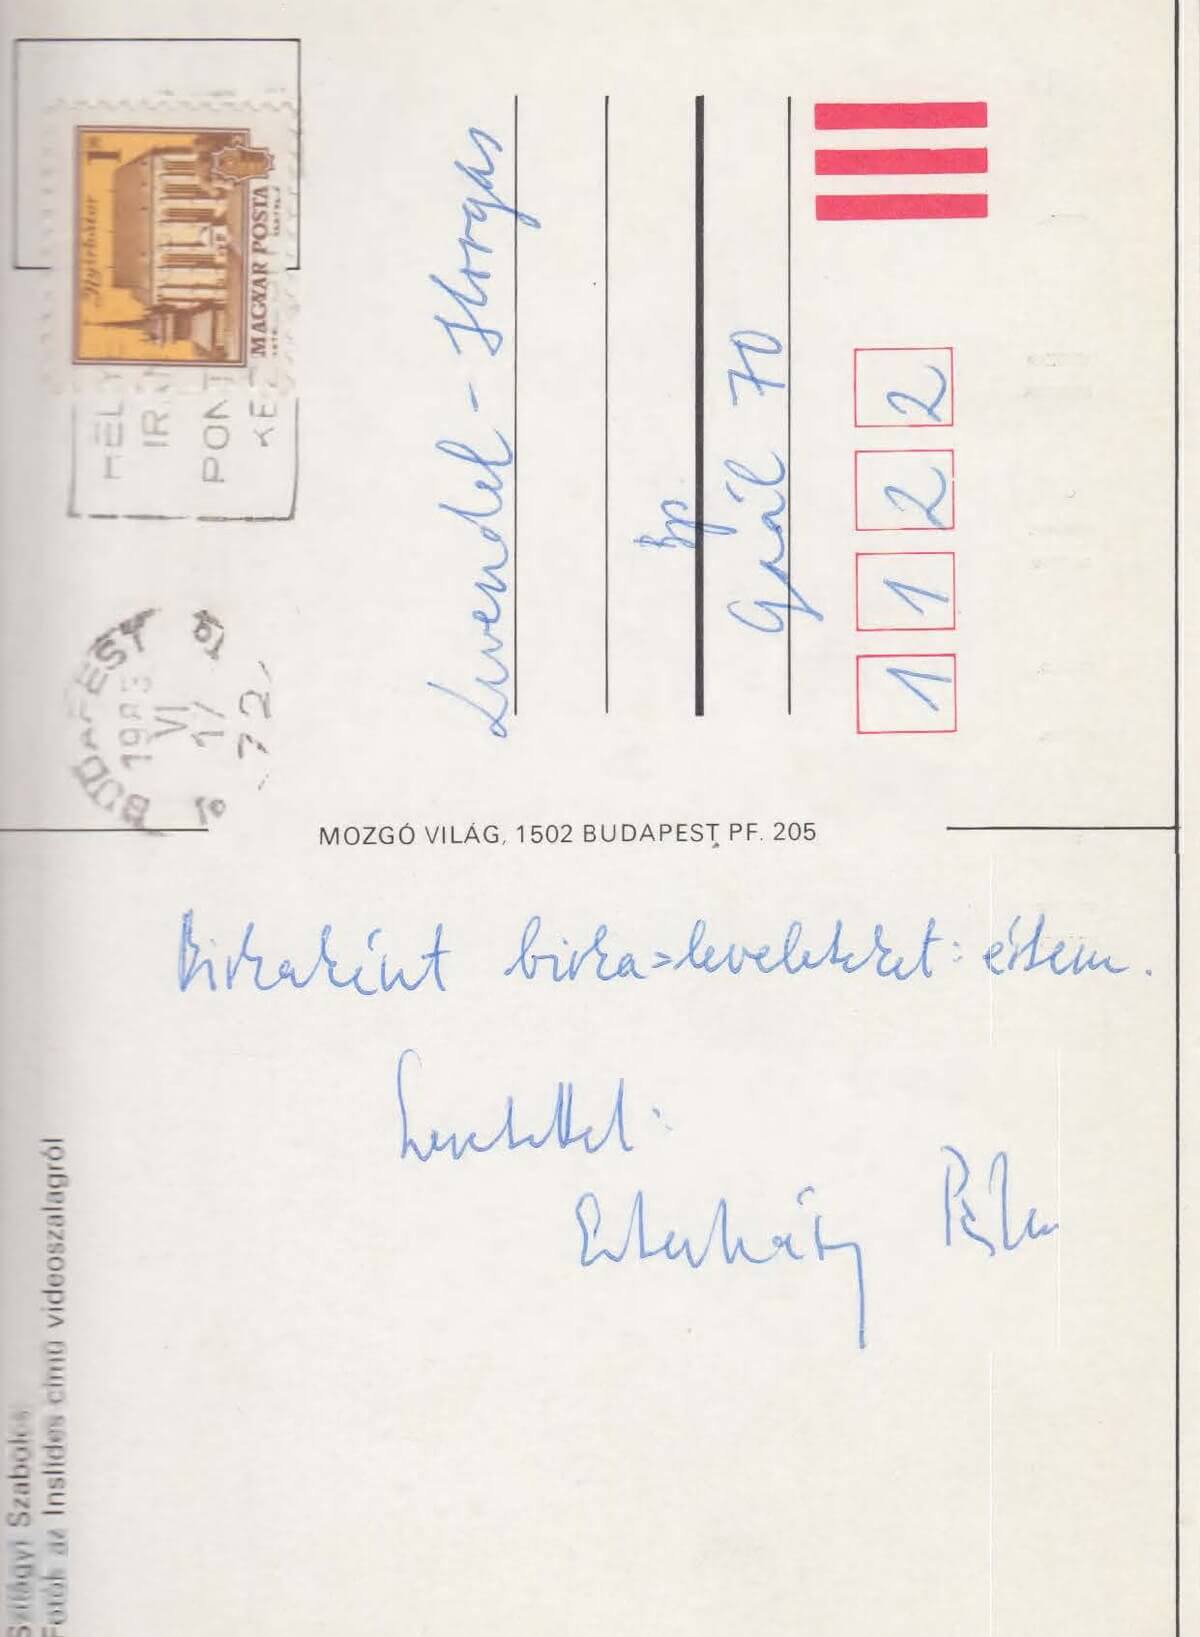 1 Ft
Nyírbátor
MAGYAR POSTA
HELY
IR
PONT
KÉ
BUDAPEST
VI
17
72
Levendel - Horgas
Bp.
Gaál 70
1 1 2 2
MOZGÓ VILÁG, 1502 BUDAPEST PF. 205
Birkaként birka=leveleteket: értem.
Szeretettel:
Esterházy Péter
Szilágyi Szabolcs
Fotók az Inslides című videoszalagról